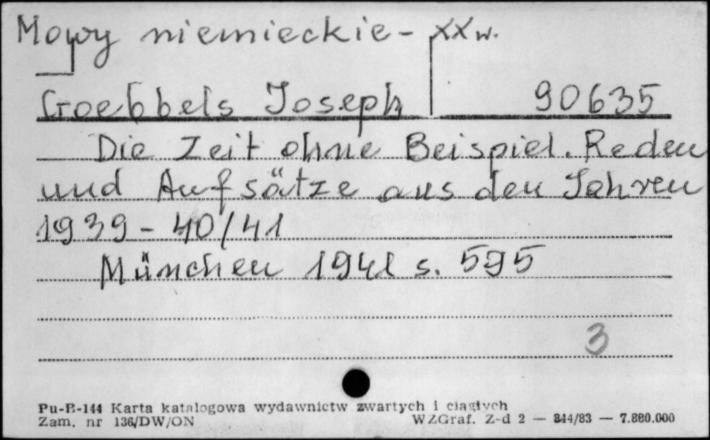 Mowy niemieckie - XX w.
Goebbels Joseph 90635
Die Zeit ohne Beispiel. Reden
und Aufsätze aus den Jahren
1939 - 40/41
München 1941 s. 595
3
Pu-B-144 Karta katalogowa wydawnictw zwartych i ciągłych
Zam. nr 136/DW/ON WZGraf. Z-d 2 — 844/83 — 7.880.000